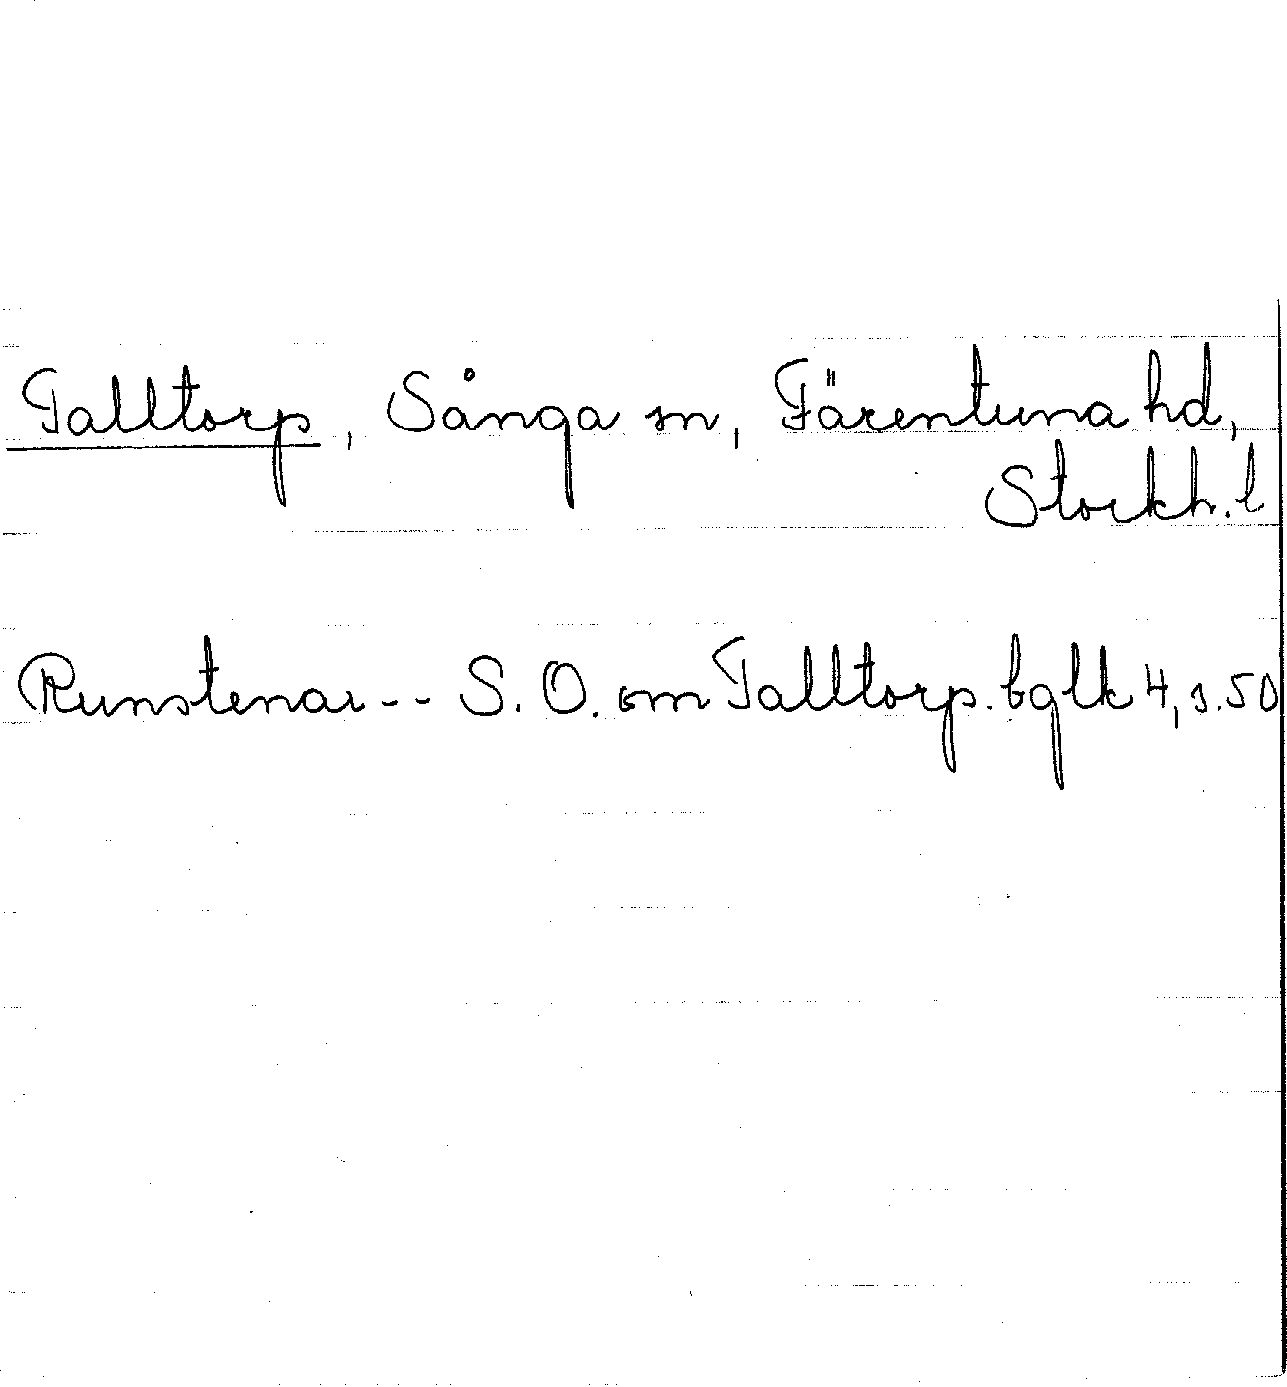 Talltorp, Sånga sn, Färentuna hd,
Stockh. l
Runstenar -- S.O. om Talltorp. bglk 4, s. 50